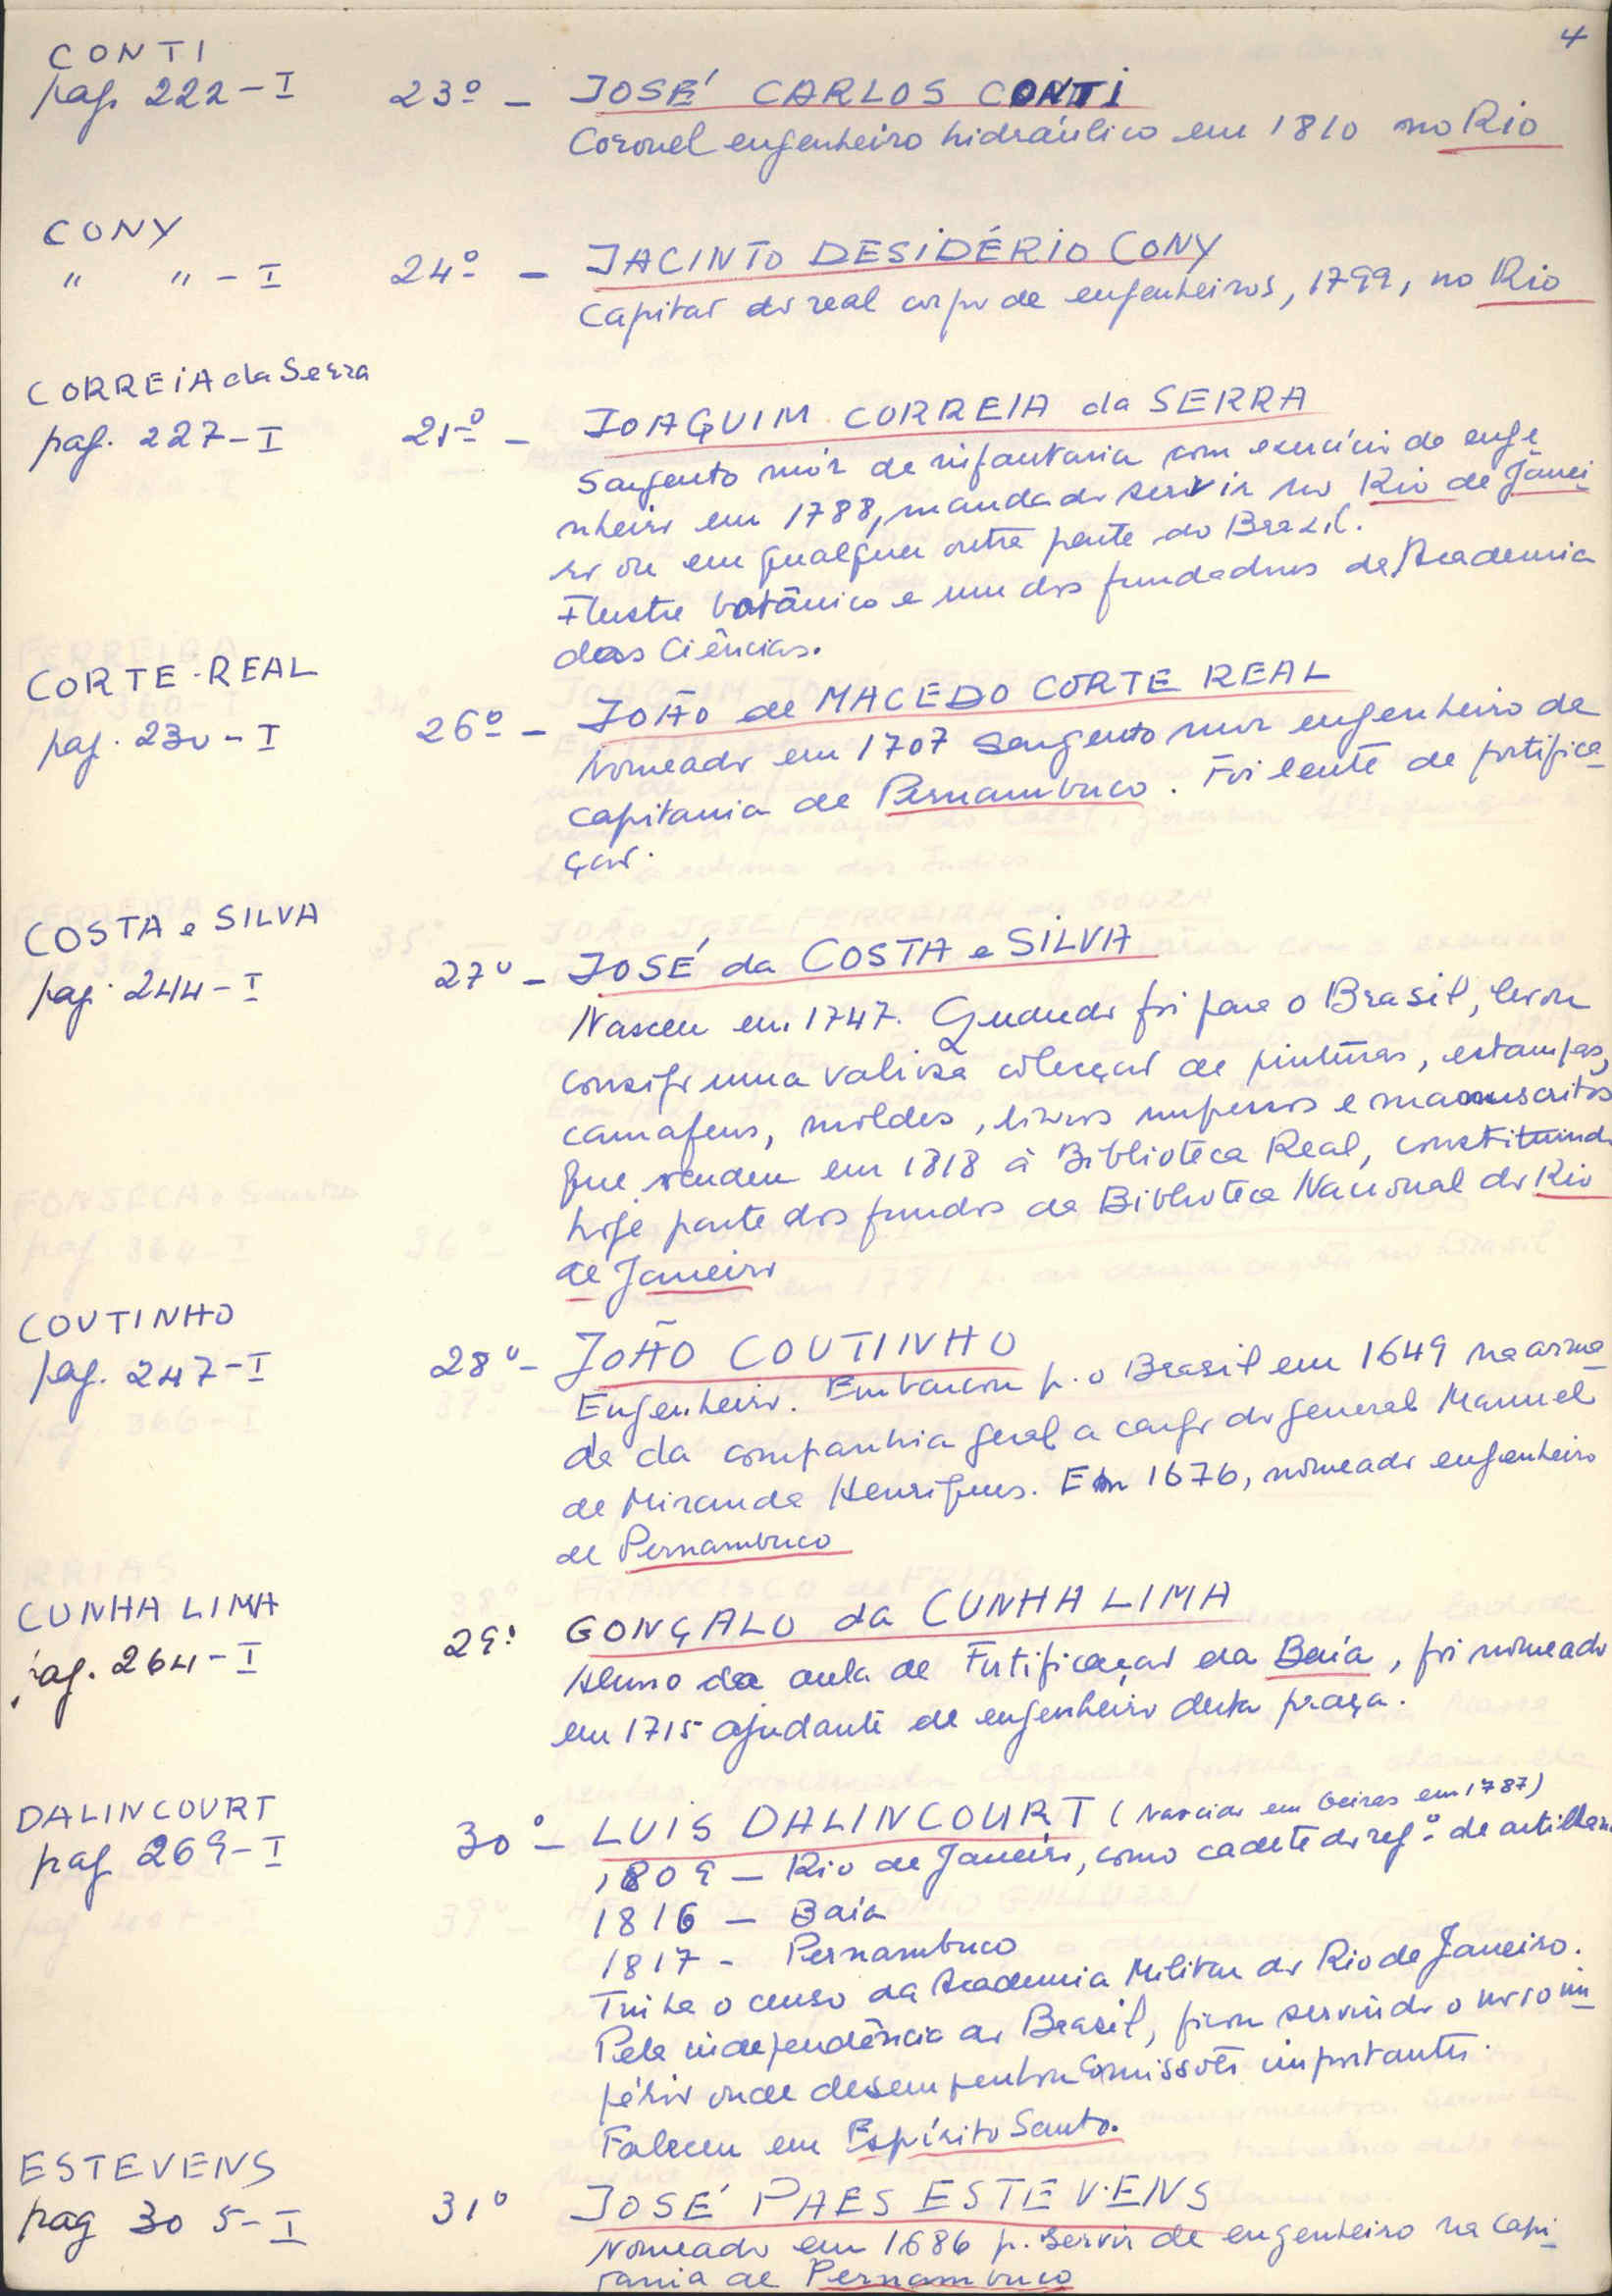 4
CONTI
pag. 222-I
23º - JOSÉ CARLOS CONTI
Coronel engenheiro hidráulico em 1810 no Rio
CONY
" " - I
24º - JACINTO DESIDÉRIO CONY
Capitão do real corpo de engenheiros, 1799, no Rio
CORREIA da Serra
pag. 227-I
25º - JOAQUIM CORREIA da SERRA
Sargento mór de infantaria com exercício de enge
nheiro em 1788, mandado servir no Rio de Janei
ro ou em qualquer outra parte do Brazil.
Ilustre botânico e um dos fundadores da Academia
das Ciências.
CORTE-REAL
pag. 230-I
26º - JOÃO de MACEDO CORTE REAL
Nomeado em 1707 Sargento mor engenheiro da
capitania de Pernambuco. Foi lente de fortifica
ção.
COSTA e SILVA
pag. 244-I
27º - JOSÉ da COSTA e SILVA
Nasceu em 1747. Quando foi para o Brasil, levou
consigo uma valiosa colecção de pinturas, estampas,
camafeus, moldes, livros impressos e manuscritos
que vendeu em 1818 à Biblioteca Real, constituindo
hoje parte dos fundos da Biblioteca Nacional do Rio
de Janeiro
COUTINHO
pag. 247-I
28º - JOÃO COUTINHO
Engenheiro. Embarcou p. o Brasil em 1649 na arma
da da companhia geral a cargo do general Manuel
de Miranda Henriques. Em 1676, nomeado engenheiro
de Pernambuco
CUNHA LIMA
pag. 264-I
29º GONÇALO da CUNHA LIMA
Aluno da aula de Fortificação da Baía, foi nomeado
em 1715 ajudante de engenheiro desta praça.
DALINCOURT
pag 269-I
30º - LUIS DALINCOURT (Nascido em Oeiras em 1787)
1809 - Rio de Janeiro, como cadete do regº de artilharia
1816 - Baía
1817 - Pernambuco
Tinha o curso da Academia Militar do Rio de Janeiro.
Pela independência do Brasil, ficou servindo o novo im
pério onde desempenhou comissões importantes.
Faleceu em Espírito Santo.
ESTEVENS
pag 305-I
31º JOSÉ PAES ESTEVENS
Nomeado em 1686 p. servir de engenheiro na Capi
tania de Pernambuco